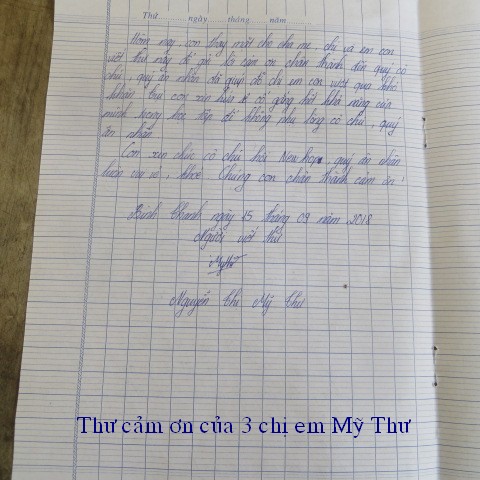 Thứ ngày tháng năm
Hôm nay con thay mặt cho cha mẹ, chị và em con
viết thư này để gửi lời cảm ơn chân thành đến quý cô
chú, quý ân nhân đã giúp đỡ chị em con vượt qua khó
khăn. Con xin hứa sẽ cố gắng hết khả năng của
mình trong học tập để không phụ lòng cô chú, quý
ân nhân.
Con xin chúc cô chú hội Newhope, quý ân nhân
luôn vui vẻ, khoẻ. Chúng con chân thành cảm ơn!
Bình Thanh ngày 15 tháng 09 năm 2018
Người viết thư
Mỹ Thư
Nguyễn Thị Mỹ Thư
Thư cảm ơn của 3 chị em Mỹ Thư